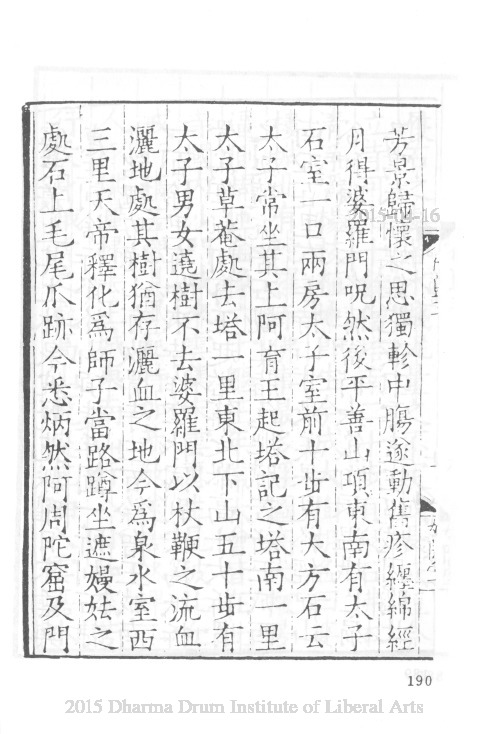 芳景歸懷之思獨軫中膓遂動舊疹纒綿經
月得婆羅門呪然後平善山頂東南有太子
石室一口兩房太子室前十步有大方石云
太子常坐其上阿育王起塔記之塔南一里
太子草菴處去塔一里東北下山五十步有
太子男女遶樹不去婆羅門以杖鞭之流血
灑地處其樹猶存灑血之地今為泉水室西
三里天帝釋化爲師子當路蹲坐遮嫚妶之
處石上毛尾爪跡今悉炳然阿周陀窟及門
2015-04-16
190
2015 Dharma Drum Institute of Liberal Arts